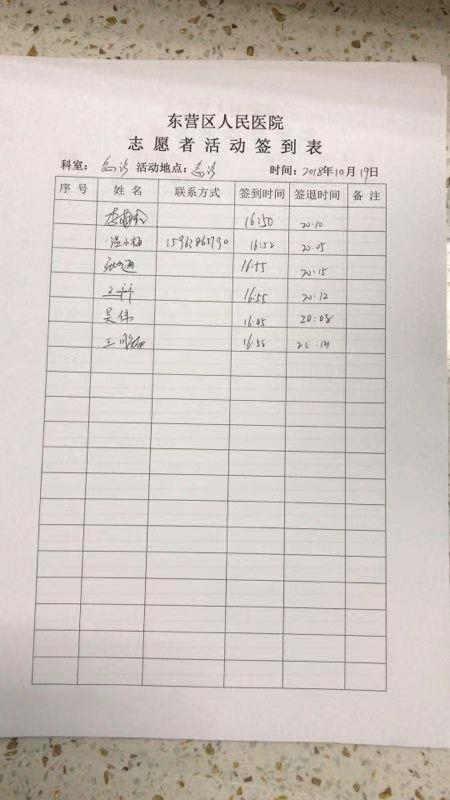 东营区人民医院
志愿者活动签到表
科室：急诊 活动地点：急诊 时间：2018年10月19日
序号 姓名 联系方式 签到时间 签退时间 备注
16:50 20:10
温小梅 15963865790 16:52 20:05
16:55 20:15
16:55 20:12
吴伟 16:45 20:08
王 16:56